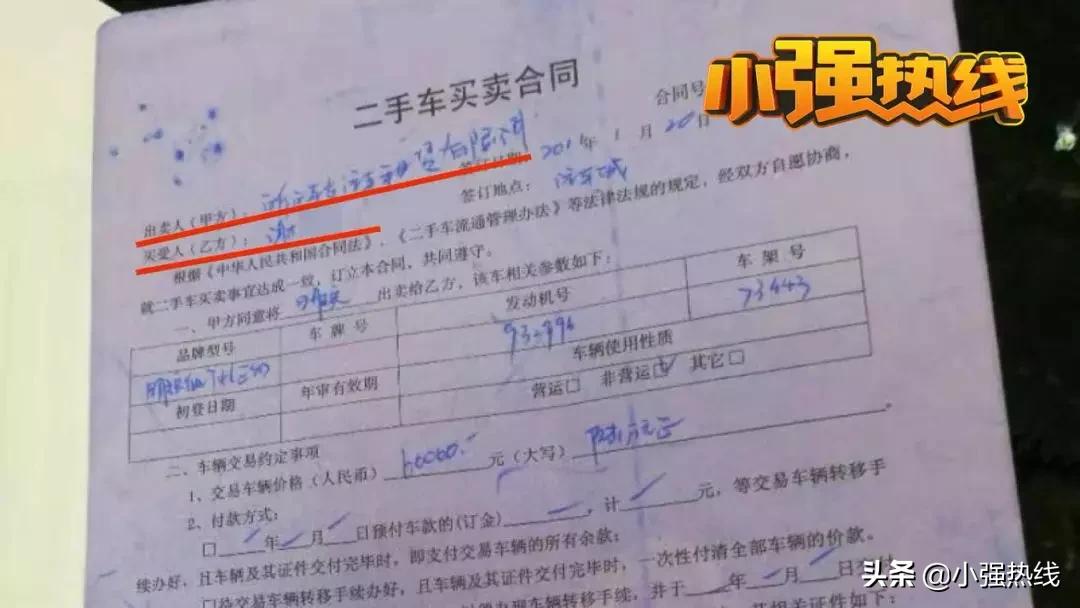 小强热线
二手车买卖合同
合同号
签订日期: 201 年 1 月 20 日
出卖人(甲方): 汽车租赁有限公司
签订地点: 汽车城
买受人(乙方): 谢
根据《中华人民共和国合同法》、《二手车流通管理办法》等法律法规的规定,经双方自愿协商,
就二手车买卖事宜达成一致,订立本合同,共同遵守。
一、甲方同意将 出卖给乙方,该车相关参数如下:
品牌型号 车牌号 发动机号 车架号
73443
初登日期 年审有效期 车辆使用性质
营运□ 非营运☑ 其它□
二、车辆交易约定事项
1、交易车辆价格(人民币) 60000. 元(大写) 陆万元正 。
2、付款方式:
□ 年 月 日预付车款的(订金) ,计 元,等交易车辆转移手
续办好,且车辆及其证件交付完毕时,即支付交易车辆的所有余款;
□待交易车辆转移手续办好,且车辆及其证件交付完毕时,一次性付清全部车辆的价款。
办理车辆转移手续,并于 年 月 日交付
其相关证件如下:
头条 @小强热线